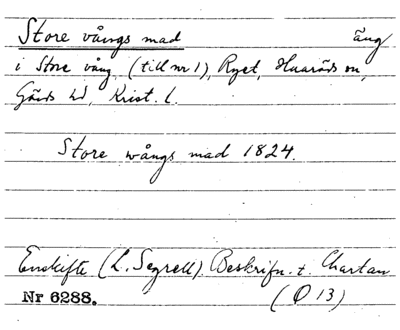 Store vångs mad äng
i Store vång (till nr 1), Ryet, Huaröds sn,
Gärds hd, Krist. l.
Store wångs mad 1824.
Enskifte (L. Segrell). Beskrifn. t. Chartan
Nr 6288. (Q 13)